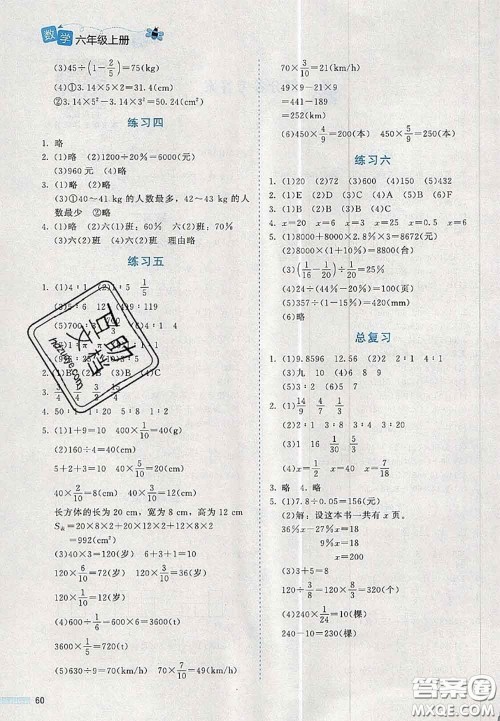 数学 六年级上册
(3)45÷(1-2/5)=75(kg)
(4)①3.14×5×2=31.4(cm)
②3.14×5²-3.14×3²=50.24(cm²)
练习四
1. 略
2. (1)略 (2)1200÷20%=6000(元)
(3)960元 (4)略
3. (1)略 (2)略
(3)①40~41 kg的人数最多，42~43 kg的人
数最少 ②略
4. (1)略 (2)六(1)班：60% 六(2)班：70%
(3)六(2)班 (4)六(2)班 理由略
练习五
1. (1)4∶1
(3)5∶9 12
(5)700∶
(6)1∶
2. (1)B (4)C
3.
4. 50∶1 5∶8 1∶2
5. (1)1+9=10 400×1/10=40(g)
(2)160÷4=40(cm)
5+2+3=10 40×5/10=20(cm)
40×2/10=8(cm) 40×3/10=12(cm)
长方体的长为20 cm，宽为8 cm，高为12 cm
=20×8×2+20×12×2+12×8×2
=992(cm²)
(3)40×3=120(岁) 120×1/10=12(岁)
120×6/10=72(岁) 120×3/10=36(岁)
(4)600÷1-600×6=3600(t)
3600×1/5=720(t)
(5)630÷9=70(km/h) 70×7/10=49(km/h)
70×3/10=21(km/h)
49×9-21×9
=441-189
=252(km)
(6)450×4/9=200(本) 450×5/9=250(本)
练习六
1. (1)20 (2)72 (3)600 (4)150 (5)432
2. (1)E (2)D (3)C (4)A (5)B (6)F
4. x=6 x=3 x=25 x=0.5 x=6
5. (1)8000+8000×2.8%×3=8672(元)
(2)8000×(1+10%)=8800(台)
(3)(1/16-1/20)÷1/20=25%
(4)98÷(2/5-1/3)×2/5=588(km)
(5)357÷(1-15%)=420(km)
(6)略
总复习
1. (1)9.8596 12.56 (2)2∶1 4∶1
(3)九 10 (4)8∶6 (5)120
2. (1)14/9 4/7 4/3 2
(2)2∶3 1∶8 4∶3 3∶20
(4)x=1/2 x=40 x=7/4
3. 略 4. 略
5. (1)7.8÷0.05=156(元)
(2)解：设这本书一共有x页。
36%x-27%x=18
9%x=18
x=200
(3)3+5=8
120×3/8-120×5/8=320(个)
(4)240×1/24=10(棵)
240-10=230(棵)
60
百助文档
hdzuoye.com
答案圈
MXQE.COM